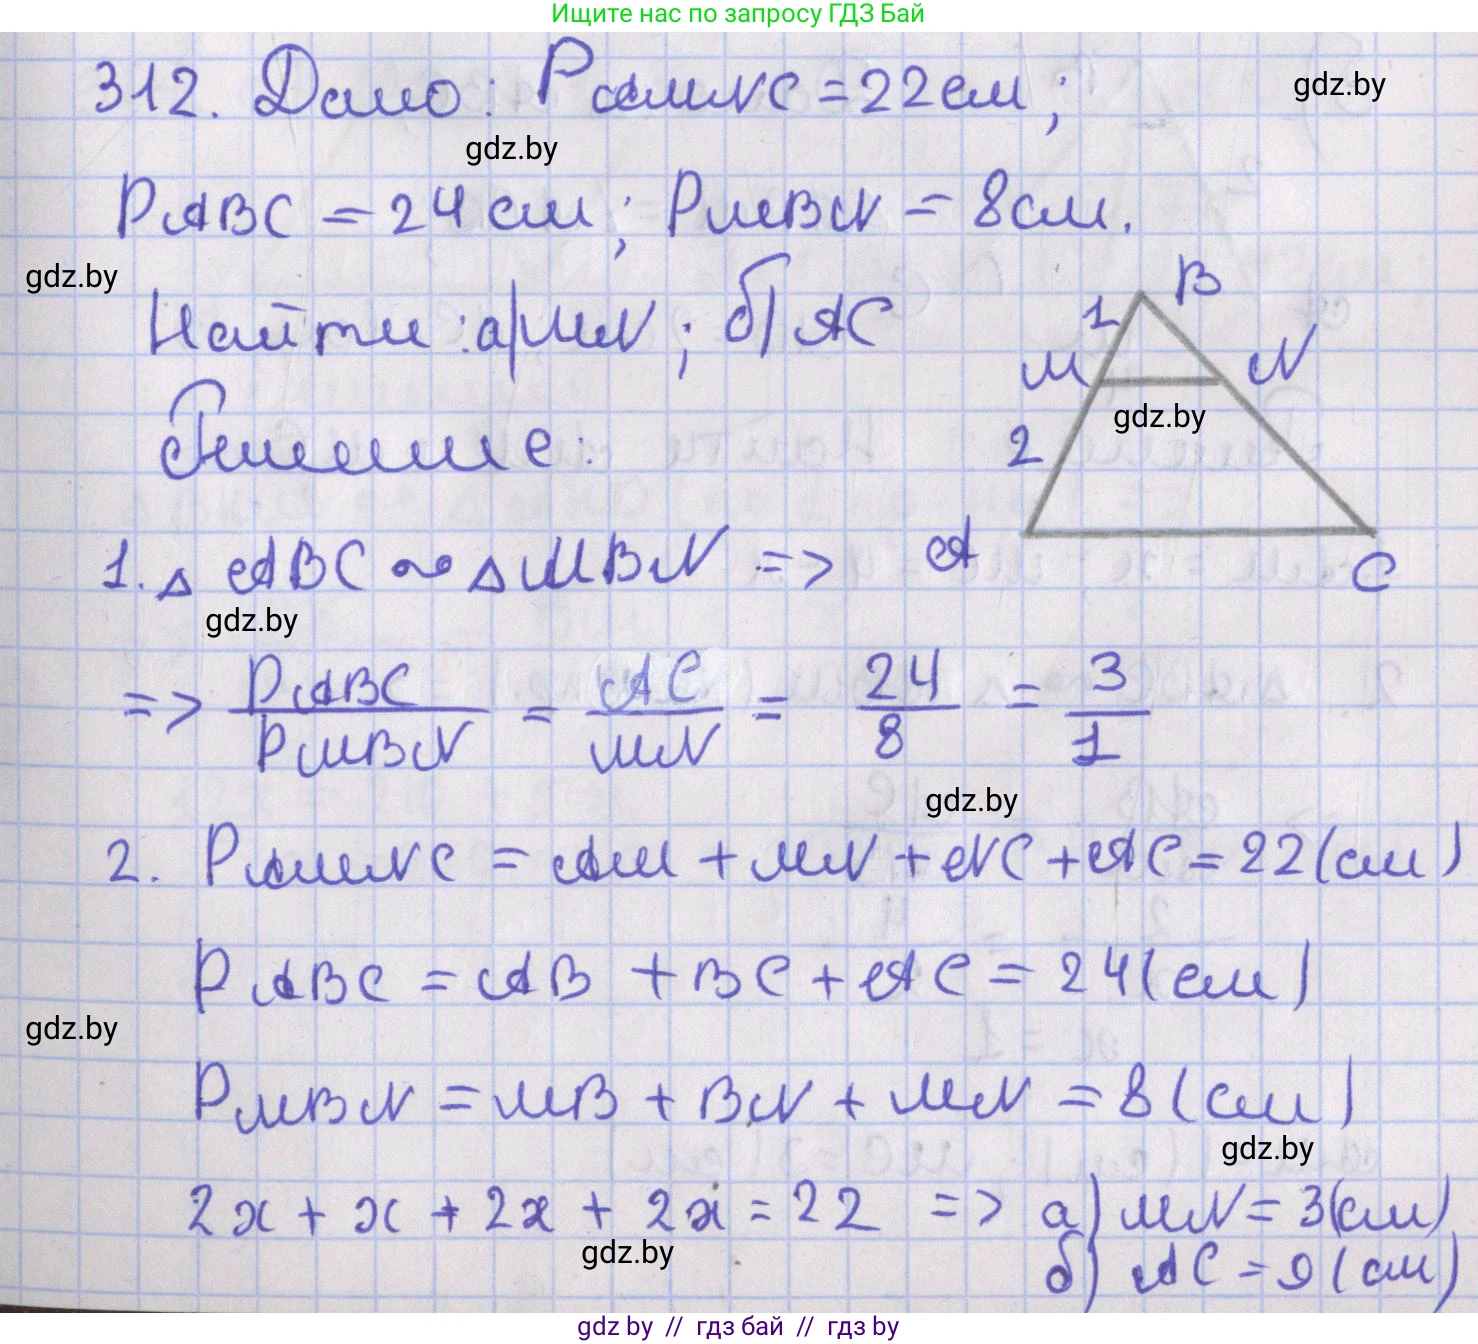 Ищите нас по запросу ГДЗ Бай
312. Дано: PAMNC = 22см;
gdz.by
gdz.by
PABC = 24 см; PMBN = 8см.
gdz.by
Найти: а) MN; б) AC
B
1
M
N
gdz.by
2
A
C
Решение:
1. △ ABC ~ △ MBN =>
gdz.by
=> PABC / PMBN = AC / MN = 24 / 8 = 3 / 1
gdz.by
2. PAMNC = AM + MN + NC + AC = 22 (см)
PABC = AB + BC + AC = 24 (см)
gdz.by
PMBN = MB + BN + MN = 8 (см)
gdz.by
2x + x + 2x + 2x = 22 => а) MN = 3 (см)
gdz.by
б) AC = 9 (см)
gdz by // гдз бай // гдз by